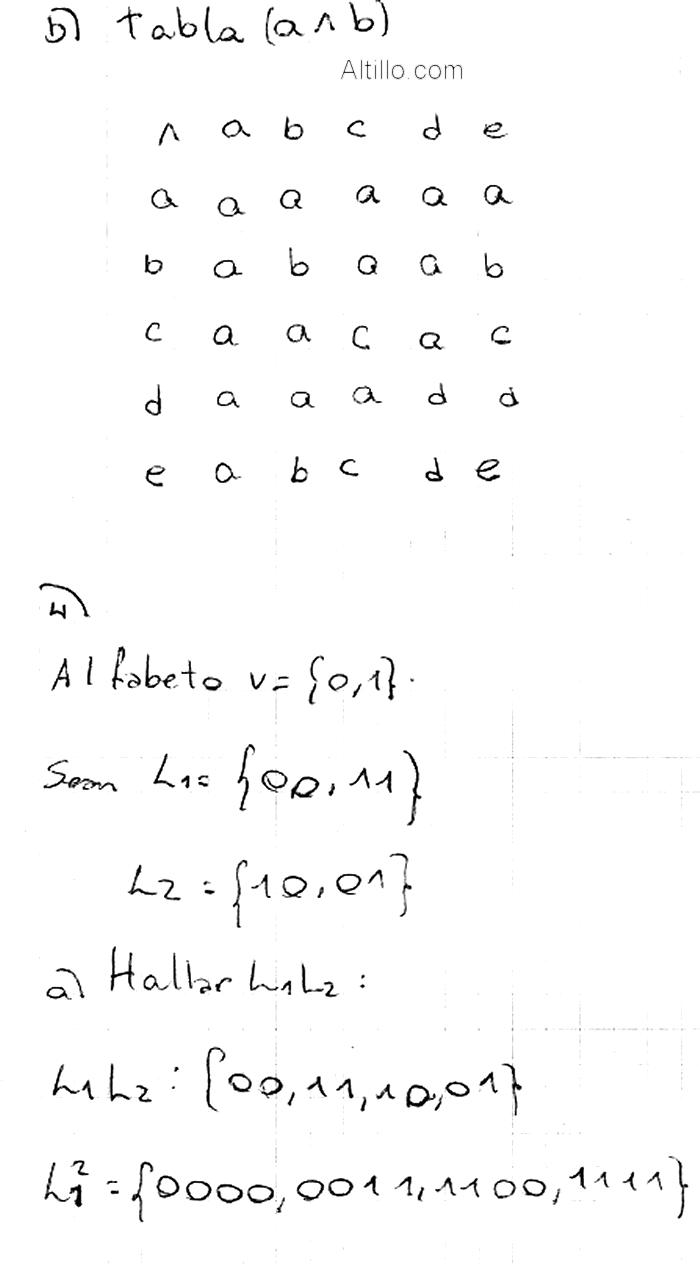 b) tabla (a ∧ b)
Altillo.com
∧ a b c d e
a a a a a a
b a b a a b
c a a c a c
d a a a d d
e a b c d e
4)
Alfabeto v = {0,1}.
Sean L1 = {00,11}
L2 = {10,01}
a) Hallar L1L2 :
L1L2 : {00,11,10,01}
L1² = {0000,0011,1100,1111}